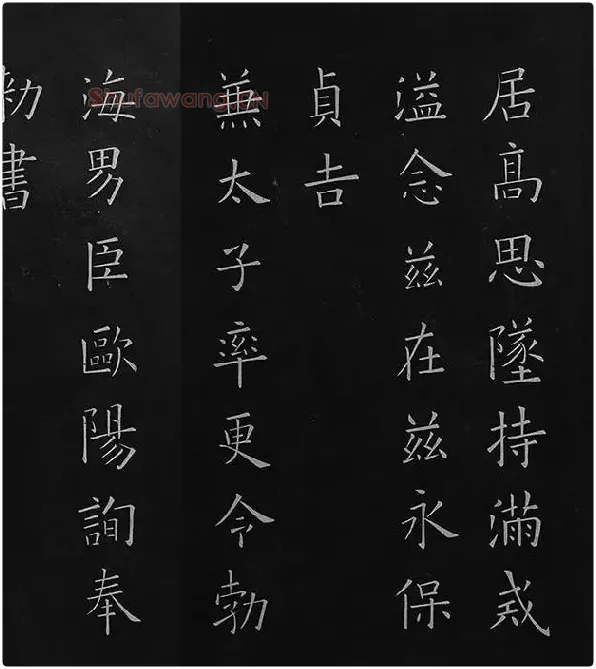 居高思墜持滿戒
溢念茲在茲永保
貞吉
兼太子率更令勃
海男臣歐陽詢奉
勅書
Shufawang.CN